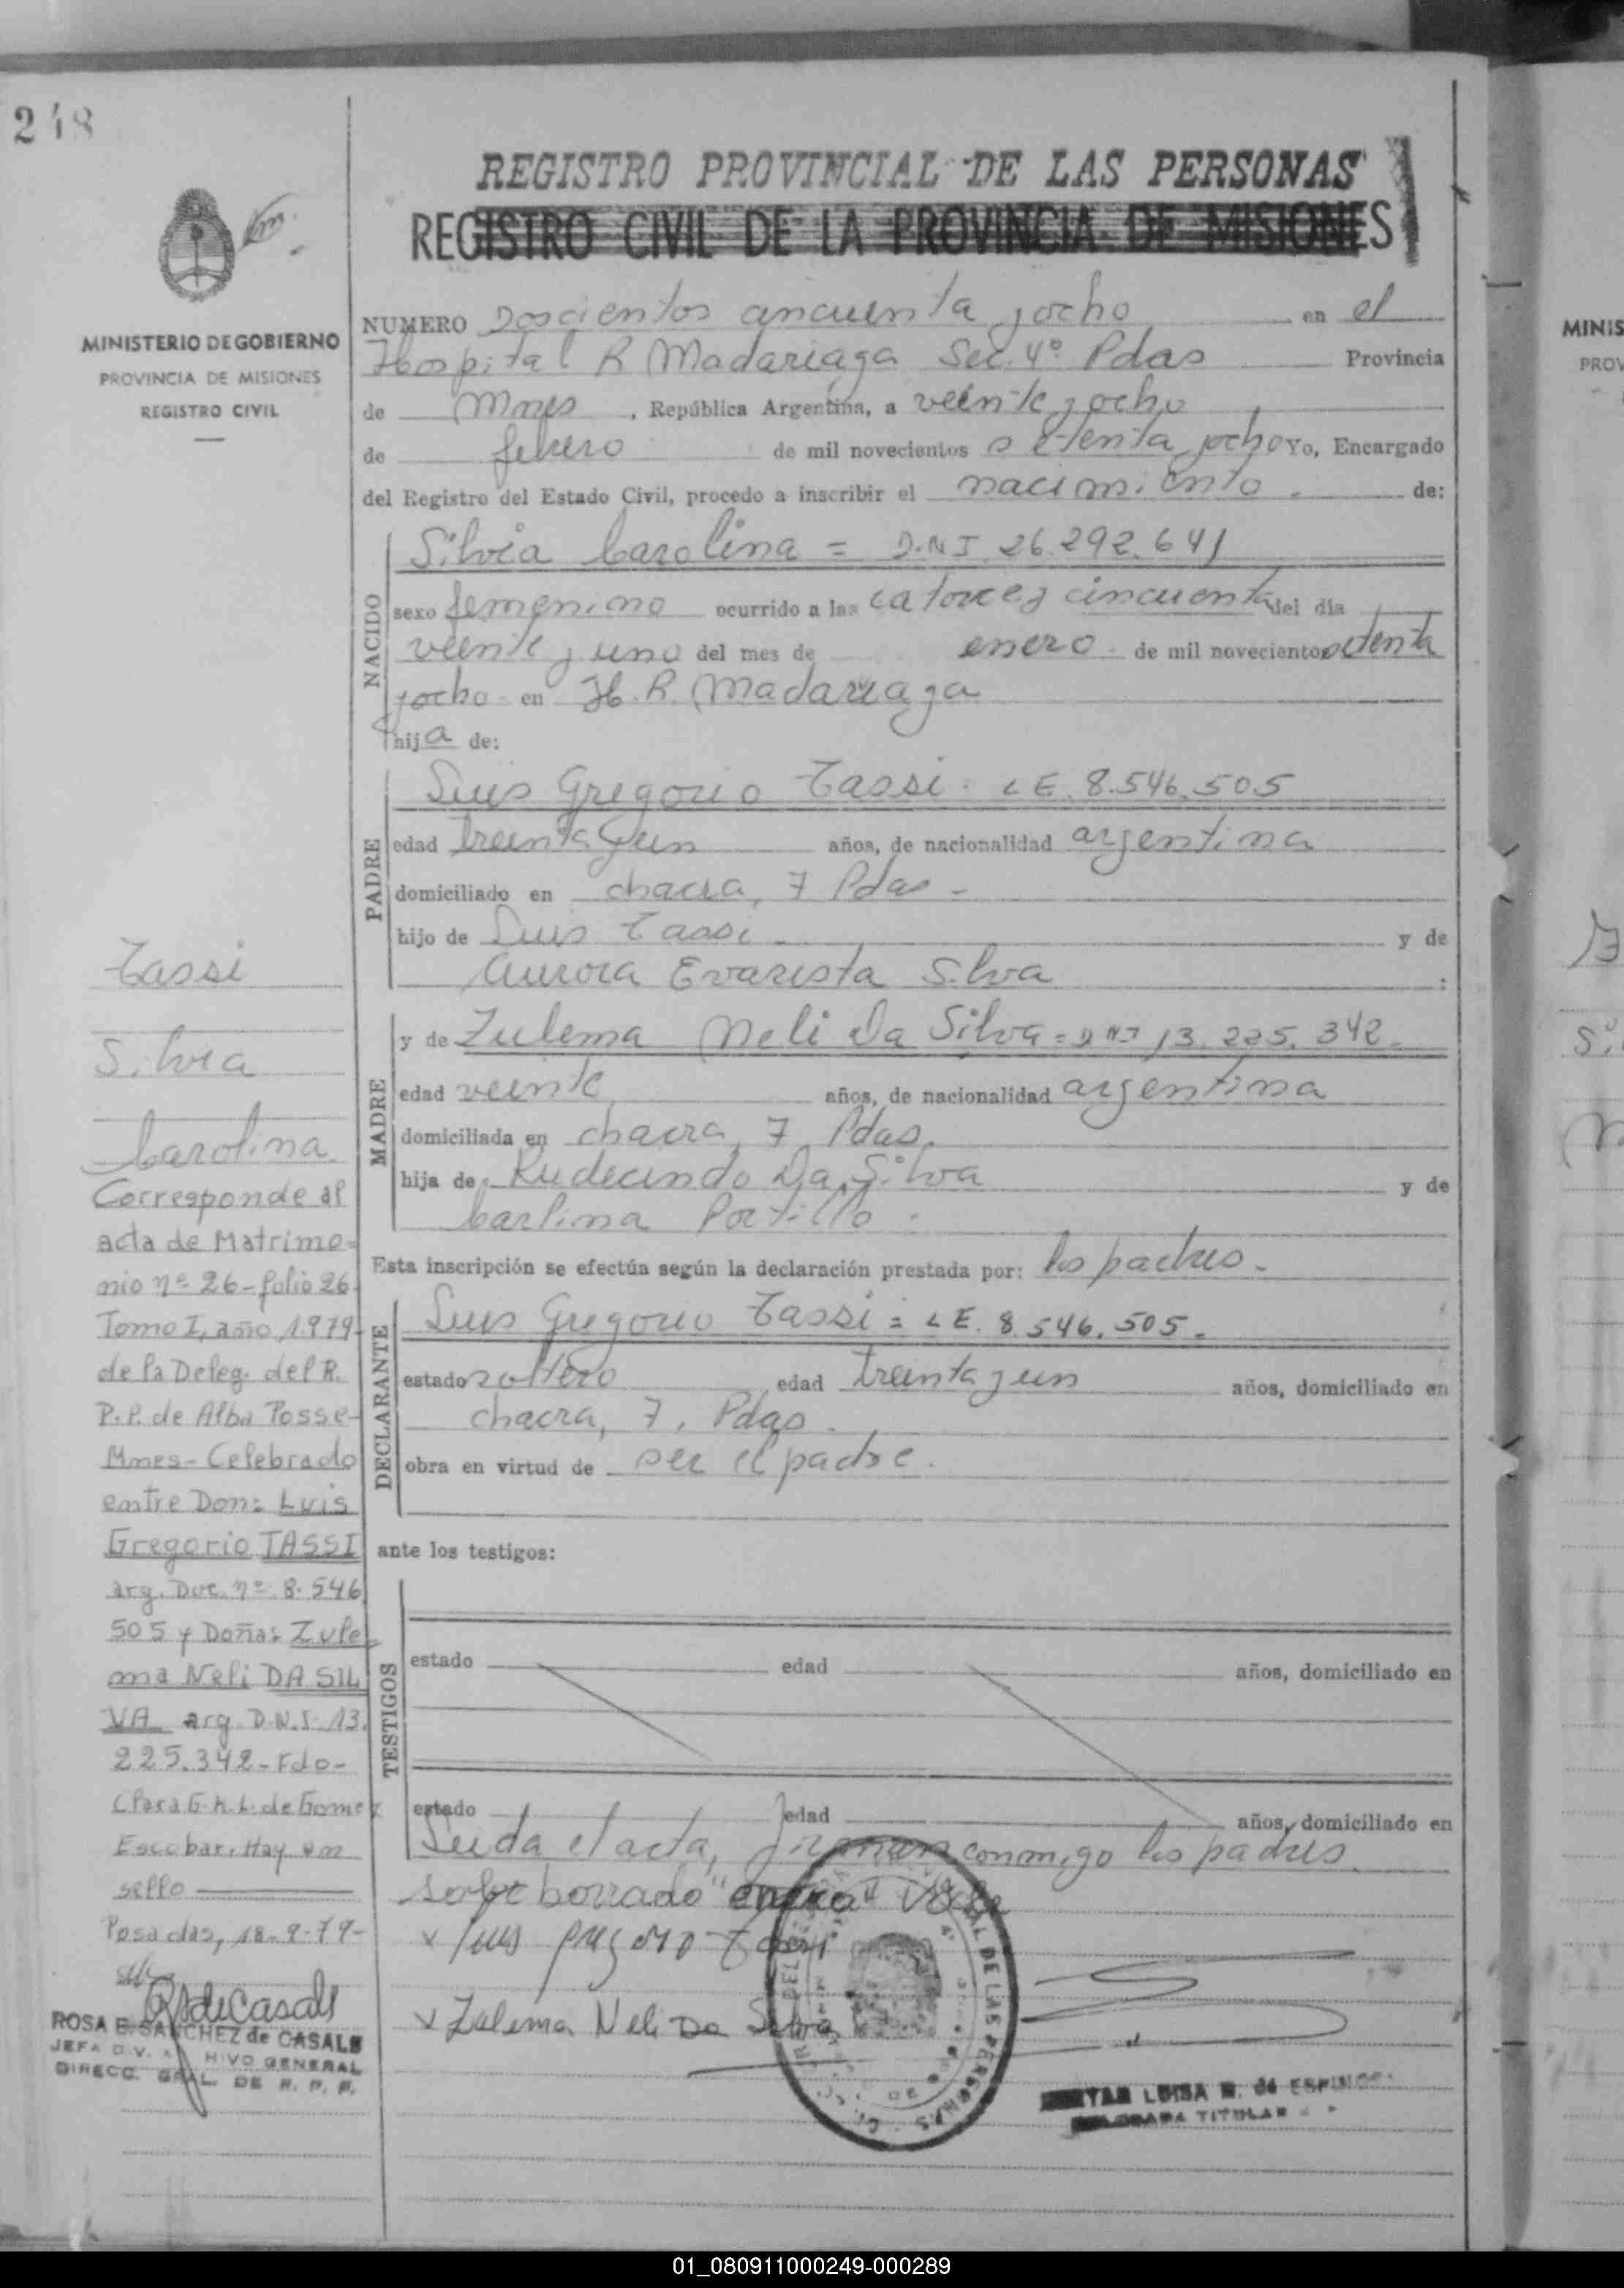 248
REGISTRO PROVINCIAL DE LAS PERSONAS
REGISTRO CIVIL DE LA PROVINCIA DE MISIONES
MINISTERIO DE GOBIERNO
PROVINCIA DE MISIONES
REGISTRO CIVIL
NUMERO Doscientos cincuenta y ocho en el
Hospital R Madariaga Sec. 4º Pdas Provincia
de Mnes, República Argentina, a veinte y ocho
de febrero de mil novecientos setenta y ocho Yo, Encargado
del Registro del Estado Civil, procedo a inscribir el nacimiento. de:
NACIDO
Silvia Carolina = D.N.I. 26.292.641
sexo femenino ocurrido a las catorce y cincuenta del día
veinte y uno del mes de enero de mil novecientos setenta
y ocho en H. R. Madariaga
hija de:
PADRE
Luis Gregorio Tassi. LE. 8.546.505
edad treinta y un años, de nacionalidad argentina
domiciliado en chacra, 7 Pdas -
hijo de Luis Tassi y de
Aurora Evarista Silva :
MADRE
y de Zulema Neli Da Silva = DNI 13.225.342.
edad veinte años, de nacionalidad argentina
domiciliada en chacra, 7 Pdas.
hija de Rudecindo Da Silva y de
Carlina Portillo.
Esta inscripción se efectúa según la declaración prestada por: los padres.
DECLARANTE
Luis Gregorio Tassi = LE. 8.546.505.
estado soltero edad treinta y un años, domiciliado en
chacra, 7, Pdas.
obra en virtud de ser el padre.
ante los testigos:
TESTIGOS
estado edad años, domiciliado en
estado edad años, domiciliado en
Leida el acta, firman conmigo los padres.
sobre borrado "enero" Vale
x Luis Gregorio Tassi
x Zulema Neli Da Silva
LUISA de ESPINOSA
TITULAR
Tassi
Silvia
Carolina
Corresponde al
acta de Matrimo-
nio nº 26-folio 26
Tomo I, año 1979-
de la Deleg. del R.
P.P. de Alba Posse-
Mnes- Celebrado
entre Don: Luis
Gregorio TASSI
arg. Doc. nº 8.546
505 y Doña: Zule-
ma Neli DA SIL
VA arg D.N.I. 13.
225.342-Fdo-
(Para G.M.L. de Gomez
Escobar. Hay un
sello
Posadas, 18-9-79-
ROSA E. SANCHEZ de CASALS
JEFA DIV. ARCHIVO GENERAL
DIRECC. GRAL. DE R. P. P.
MINIS
PROV
01_080911000249-000289